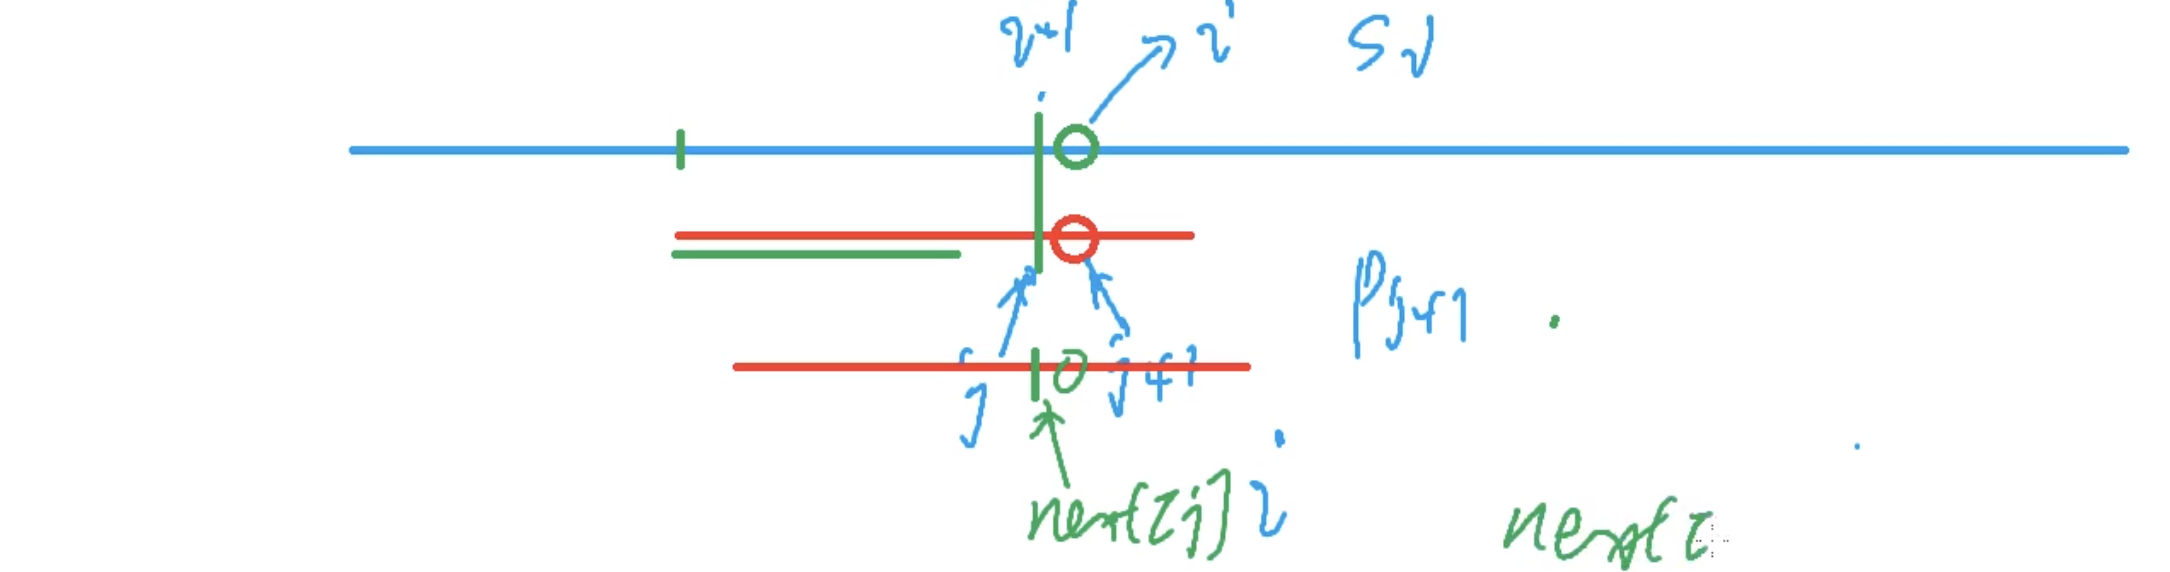 i-1 i Si
Pj+1
j j+1
next[j] i
next[